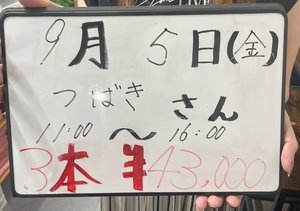 9月 5日(金)
つばき さん
11:00 〜 16:00
3本 ¥43,000